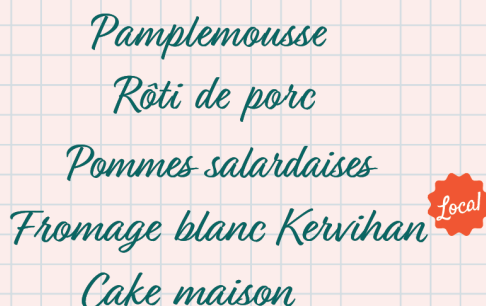 Pamplemousse
Rôti de porc
Pommes salardaises
Fromage blanc Kervihan
Local
Cake maison